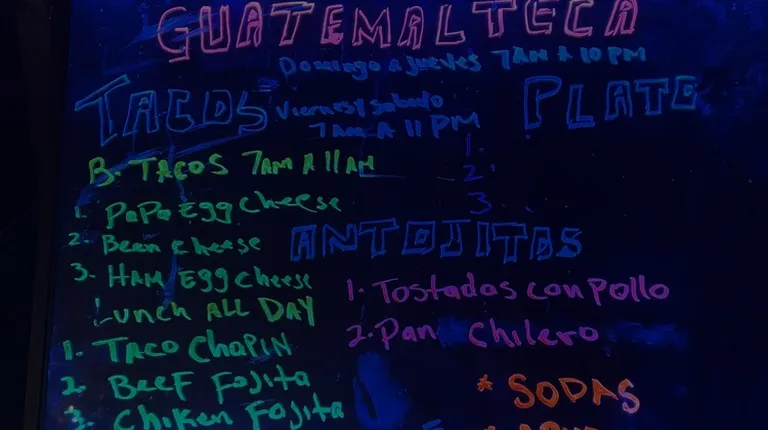 GUATEMALTECA
Domingo a jueves 7AM A 10 PM
TACOS
Viernes y sabado
7AM A 11 PM
B. TACOS 7AM A 11AM
1. PAPA EGG cheese
2. Been cheese
3. HAM EGG cheese
Lunch ALL DAY
1. TACO CHAPIN
2 BEEF Fajita
3. Chiken Fajita
PLATO
1.
2.
3.
ANTOJITOS
1. Tostadas con pollo
2. Pan Chilero
* SODAS